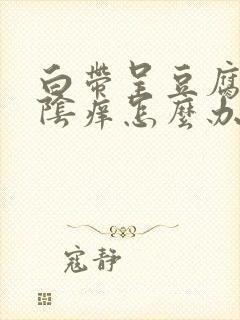 白带呈豆腐
陰痒怎麼办
寇静